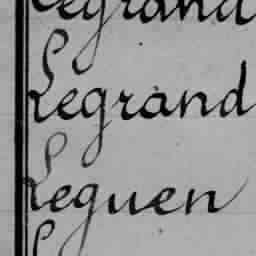 Legrand
Legrand
Leguen